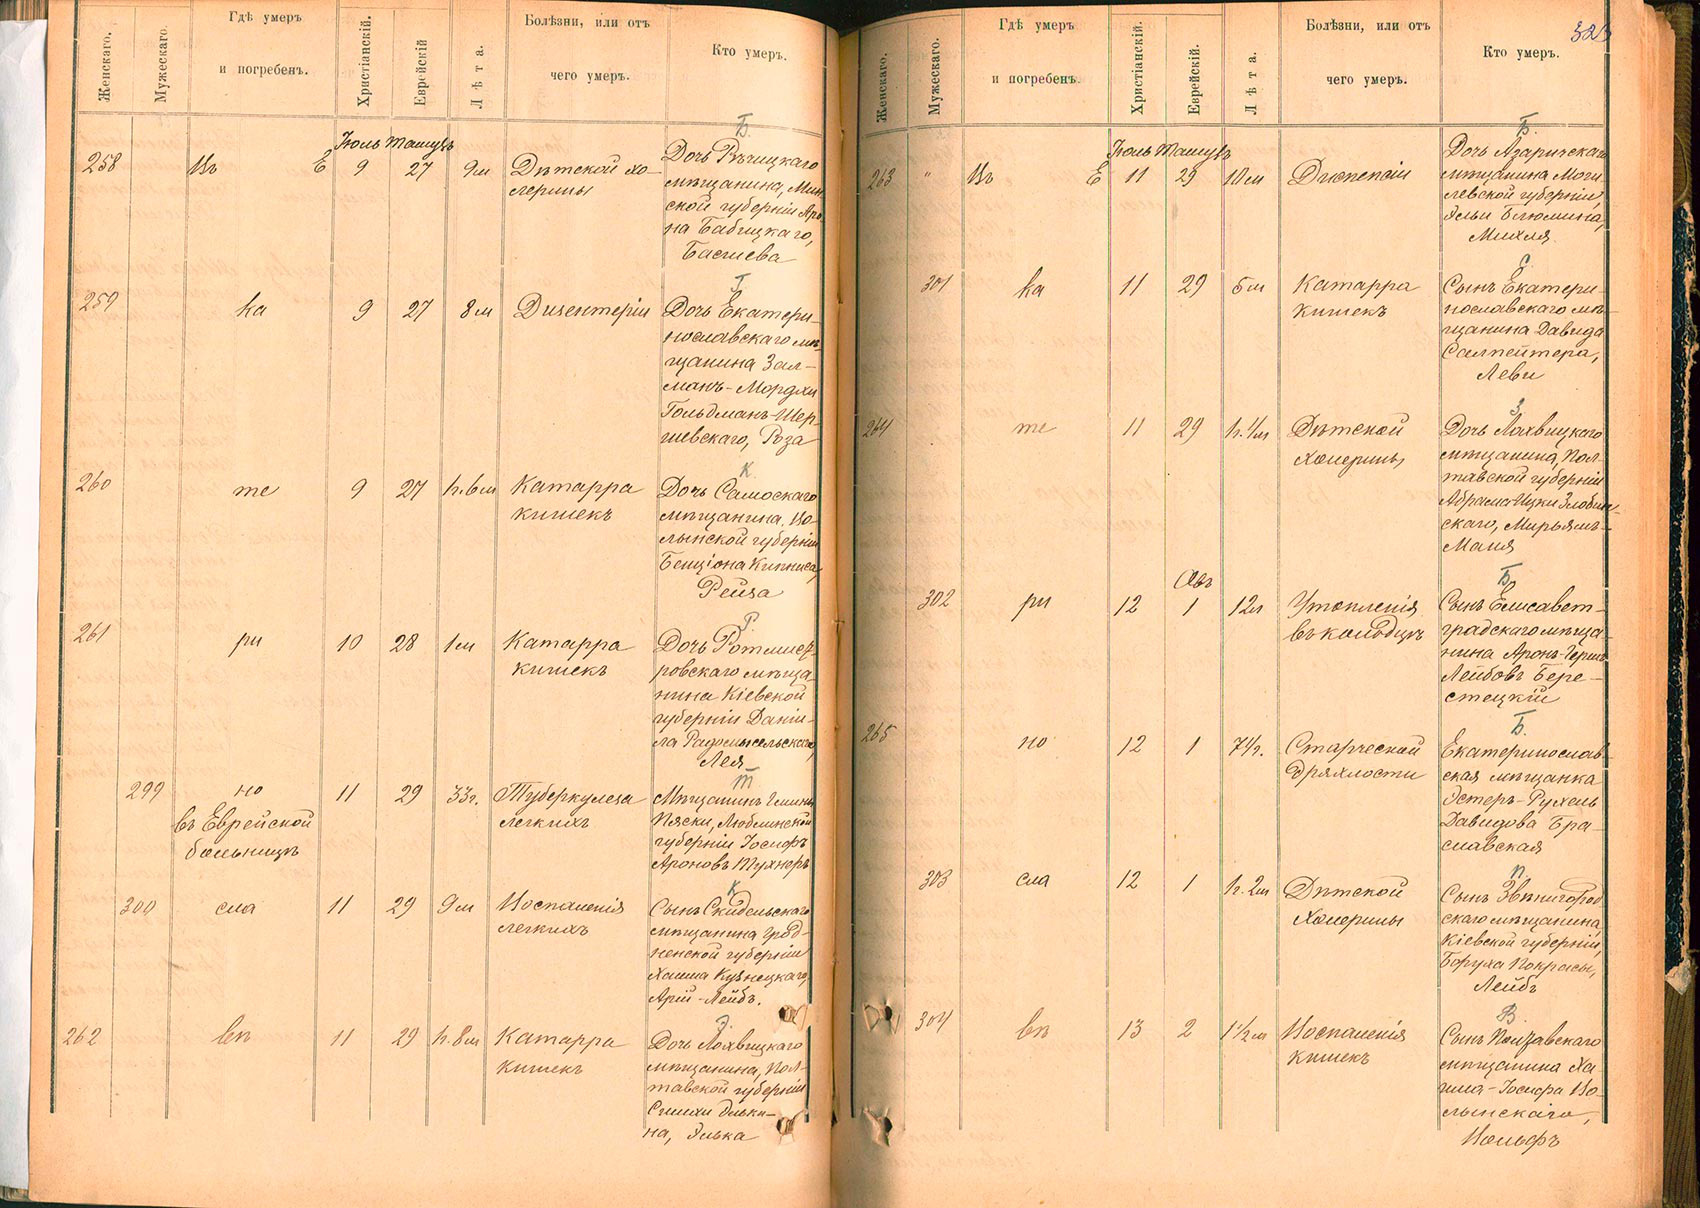 Женскаго.
Мужескаго.
Гдѣ умеръ
и погребенъ.
Христіанскій.
Еврейскій
Лѣта.
Болѣзни, или отъ
чего умеръ.
Кто умеръ.
Б.
Іюль Тамузъ
258 Въ Е 9 27 9м Дѣтской хо-
лерины
Дочь Рѣчицкаго
мѣщанина, Мин
ской губерніи Аро
на Бабицкаго,
Басшева
Г
259 ка 9 27 8м Дизентеріи
Дочь Екатери-
нославскаго мѣ-
щанина Зал-
манъ-Мордхи
Гольдманъ-Шер
шевскаго, Роза
К
260 те 9 27 1г.6м Катарра
кишекъ
Дочь
мѣщанина, Во-
лынской губерніи
Бенціона Кипниса,
Рейза
Р.
261 ри 10 28 1м Катарра
кишекъ
Дочь Ротмист-
ровскаго мѣща-
нина Кіевской
губерніи Даніи-
ла Радомысельскаго,
Лея
Т
299 но 11 29 33г. Туберкулеза
легкихъ
въ Еврейской
больницѣ
Мѣщанинъ Гмины
Пяски, Люблинской
губерніи Іосифъ
Ароновъ Тухнеръ
К
300 сла 11 29 9м Воспаленія
легкихъ
Сынъ Скидельскаго
мѣщанина Грод-
ненской губерніи
Хаима Кузнецкаго,
Арій-Лейбъ.
Э.
262 вѣ 11 29 1г.8м Катарра
кишекъ
Дочь Лохвицкаго
мѣщанина, Пол-
тавской губерніи
Симхи Эльки-
на, Элька
323
Женскаго.
Мужескаго.
Гдѣ умеръ
и погребенъ.
Христіанскій.
Еврейскій.
Лѣта.
Болѣзни, или отъ
чего умеръ.
Кто умеръ.
Б.
Іюль Тамузъ
263 " Въ Е 11 29 10м
Дочь Азаричскаго
мѣщанина Моги
левской губерніи,
Эльи Блюмина,
Михля
С.
301 ка 11 29 5м Катарра
кишекъ
Сынъ Екатери-
нославскаго мѣ-
щанина Давида
Салпейтера,
Леви
З
264 те 11 29 1г.4м Дѣтской
холерины
Дочь Лохвицкаго
мѣщанина, Пол-
тавской губерніи
Абрама-Ицки Злобин-
скаго, Мирьямъ-
Маля
Б
Авъ
302 ри 12 1 12л Утопленія
въ колодцѣ
Сынъ Елисавет-
градскаго мѣща-
нина Аронъ-Герша
Лейбовъ Бере-
стецкій
Б.
265 но 12 1 74г. Старческой
дряхлости
Екатеринослав
ская мѣщанка
Эстеръ-Рухель
Давидова Бра-
славская
П.
303 сла 12 1 1г.2м Дѣтской
холерины
Сынъ Звѣнигород
скаго мѣщанина,
Кіевской губерніи,
Боруха Покрасы,
Лейбъ
В.
304 вѣ 13 2 1 1/2м Воспаленія
кишекъ
Сынъ Полтавскаго
мѣщанина Ха-
има-Іосифа Во-
лынскаго,
Вольфъ